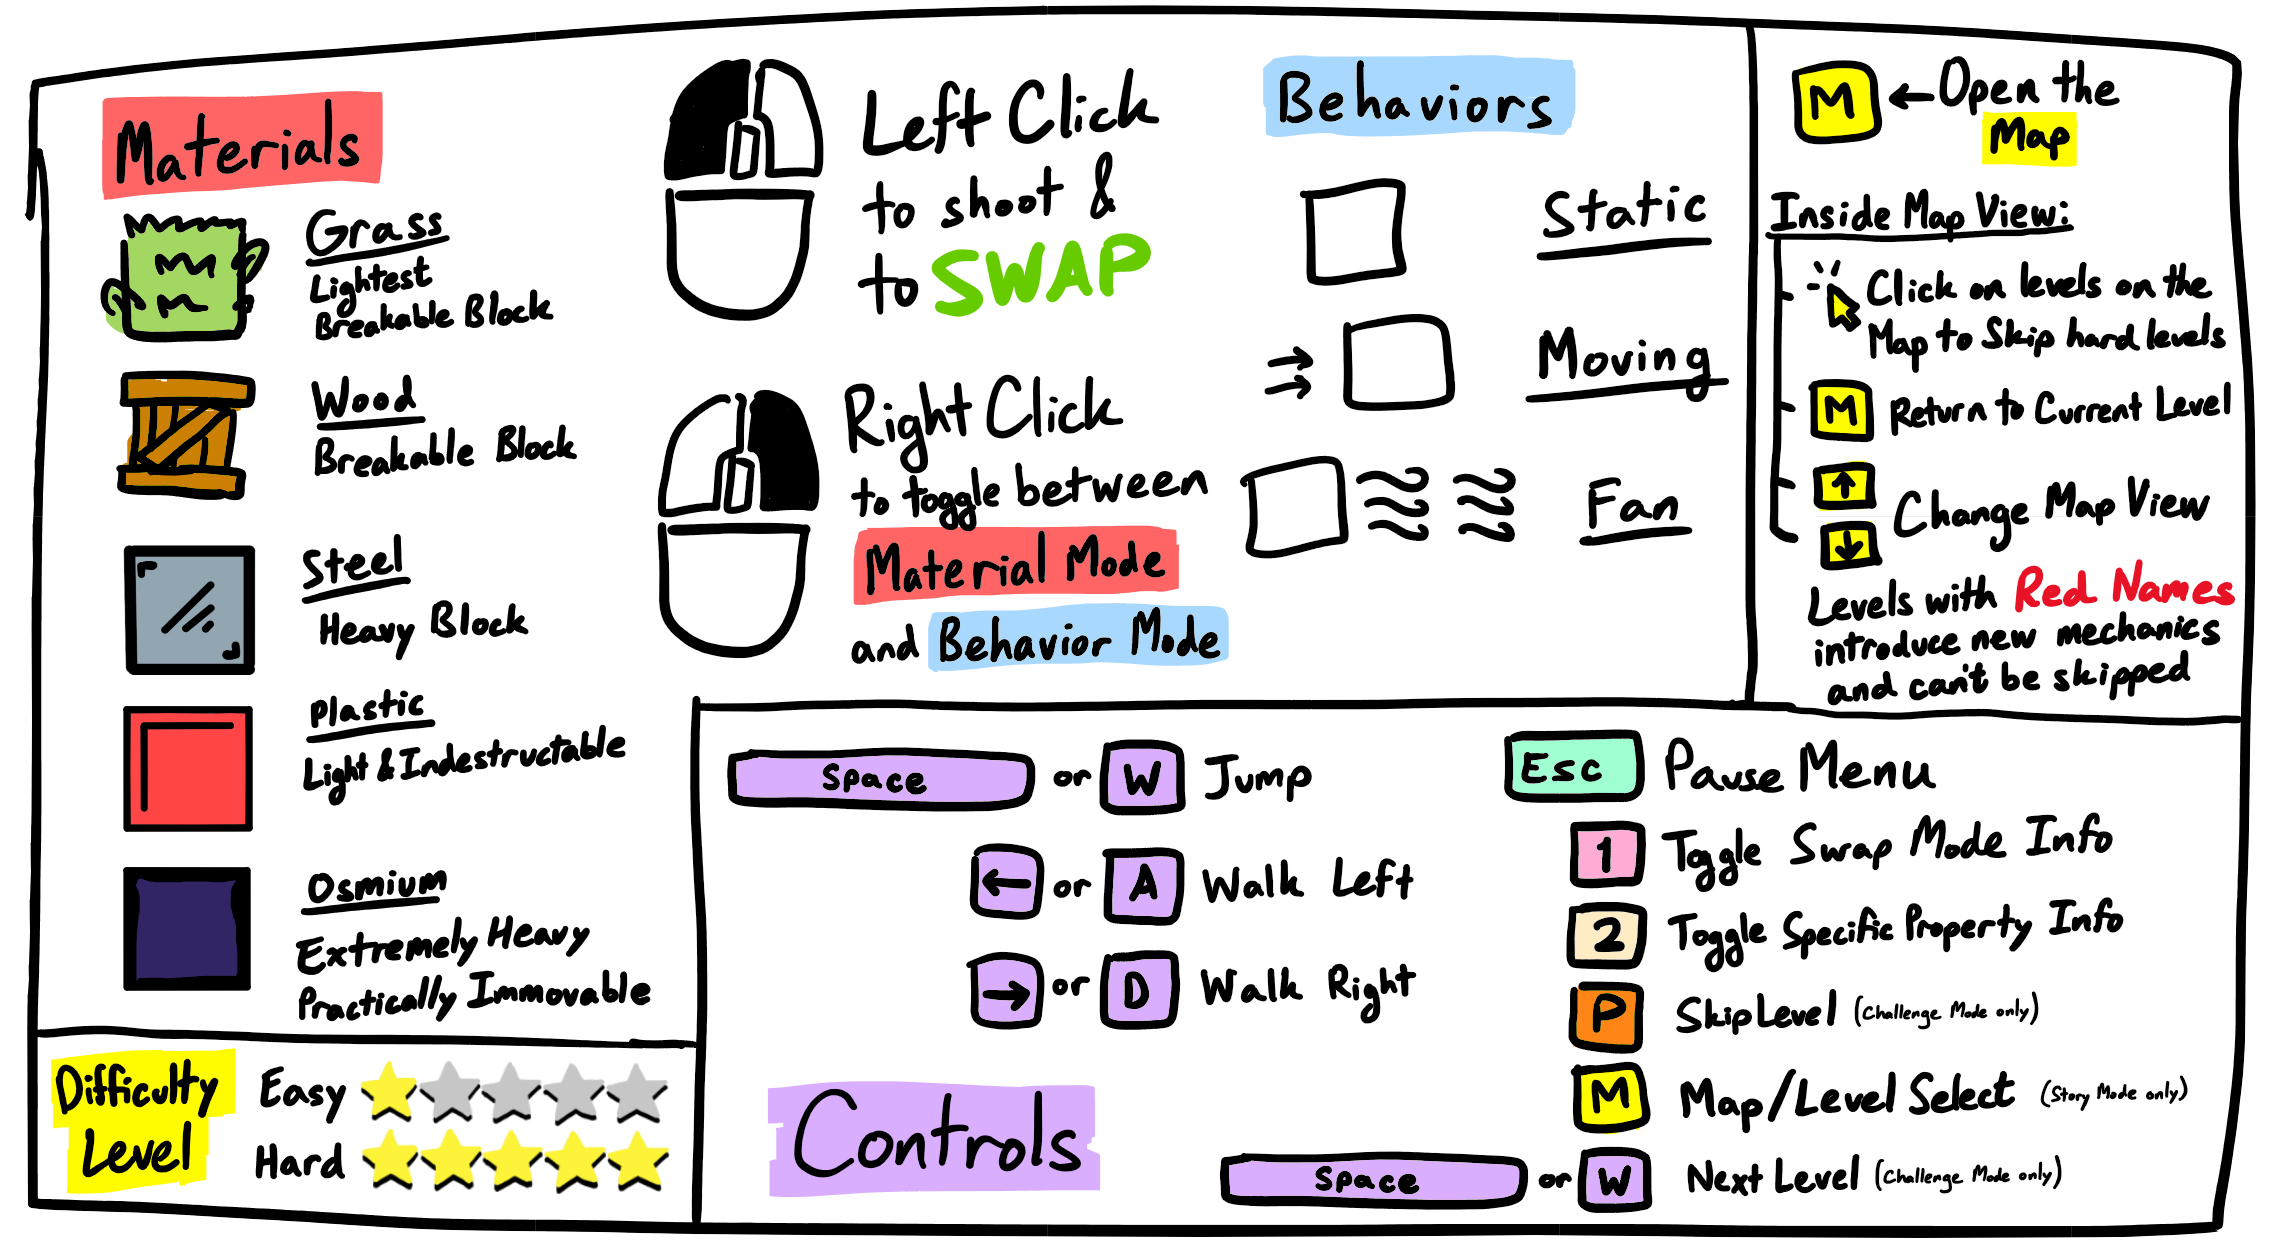 Materials
Grass
Lightest
Breakable Block
Wood
Breakable Block
Steel
Heavy Block
Plastic
Light & Indestructable
Osmium
Extremely Heavy
Practically Immovable
Left Click
to shoot &
to SWAP
Right Click
to toggle between
Material Mode
and Behavior Mode
Behaviors
Static
Moving
Fan
M ← Open the
Map
Inside Map View:
Click on levels on the
Map to Skip hard levels
M Return to Current Level
↑
↓ Change Map View
Levels with Red Names
introduce new mechanics
and can't be skipped
Difficulty
Level
Easy
Hard
Space or W Jump
← or A Walk Left
→ or D Walk Right
Controls
Esc Pause Menu
1 Toggle Swap Mode Info
2 Toggle Specific Property Info
P Skip Level (Challenge Mode only)
M Map/Level Select (Story Mode only)
Space or W Next Level (Challenge Mode only)